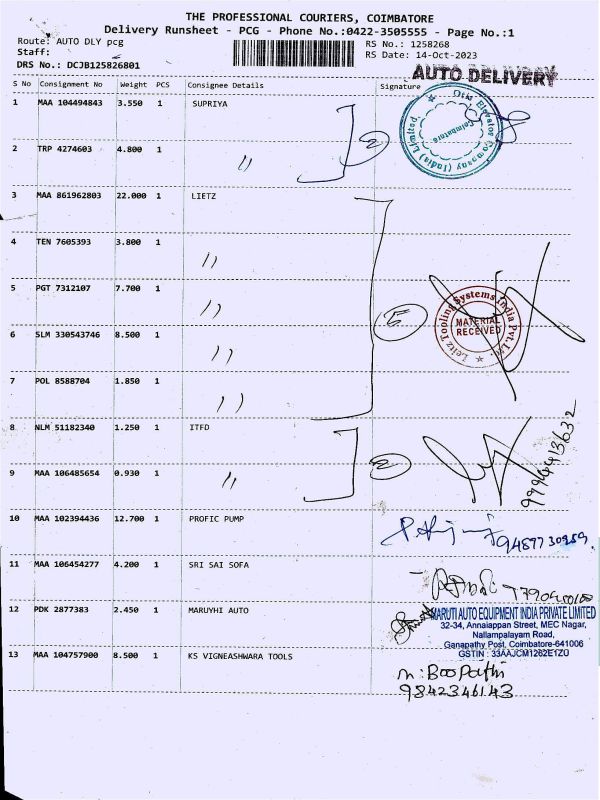 THE PROFESSIONAL COURIERS, COIMBATORE
Delivery Runsheet - PCG - Phone No.:0422-3505555 - Page No.:1
Route: AUTO DLY pcg RS No.: 1258268
Staff: RS Date: 14-Oct-2023
DRS No.: DCJB125826801
AUTO DELIVERY
S No Consignment No Weight PCS Consignee Details Signature
1 MAA 104494843 3.550 1 SUPRIYA
Otis Elevator Company (India) Limited. Coimbatore
2
2 TRP 4274603 4.800 1 "
3 MAA 861962803 22.000 1 LIETZ
4 TEN 7605393 3.800 1 "
5 PGT 7312107 7.700 1 "
5
Leitz Tooling Systems India Pvt. Ltd.
MATERIAL
RECEIVED
6 SLM 330543746 8.500 1 "
7 POL 8588704 1.850 1 "
8 NLM 51182340 1.250 1 ITFD
2
9994413632
9 MAA 106485654 0.930 1 "
10 MAA 102394436 12.700 1 PROFIC PUMP
9487730959
11 MAA 106454277 4.200 1 SRI SAI SOFA
12 PDK 2877383 2.450 1 MARUYHI AUTO
MARUTI AUTO EQUIPMENT INDIA PRIVATE LIMITED
32-34, Annaiappan Street, MEC Nagar,
Nallampalayam Road,
Ganapathy Post, Coimbatore-641006
GSTIN : 33AAJCM1262E1ZU
13 MAA 104757900 8.500 1 KS VIGNEASHWARA TOOLS
M. Boopathi
9842346143